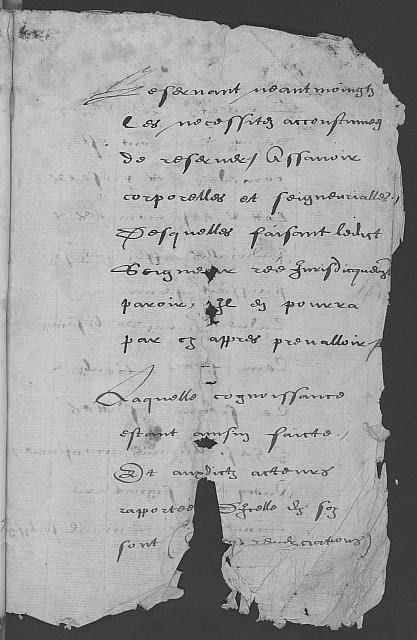 Reservant neantmoingtz
Les necessitez accoustumeez
de reserver / Assavoir
corporelles et seigneurialles /
Desquelles faisant ledict
Seigneur Jurisdicquem͠t
paroir, Il en pourra
par cy appres prevalloir /
Laquelle cognoissance
estant ainsin faicte /
Et auxdictz acteurs
rapportee Icelle en soy
sont